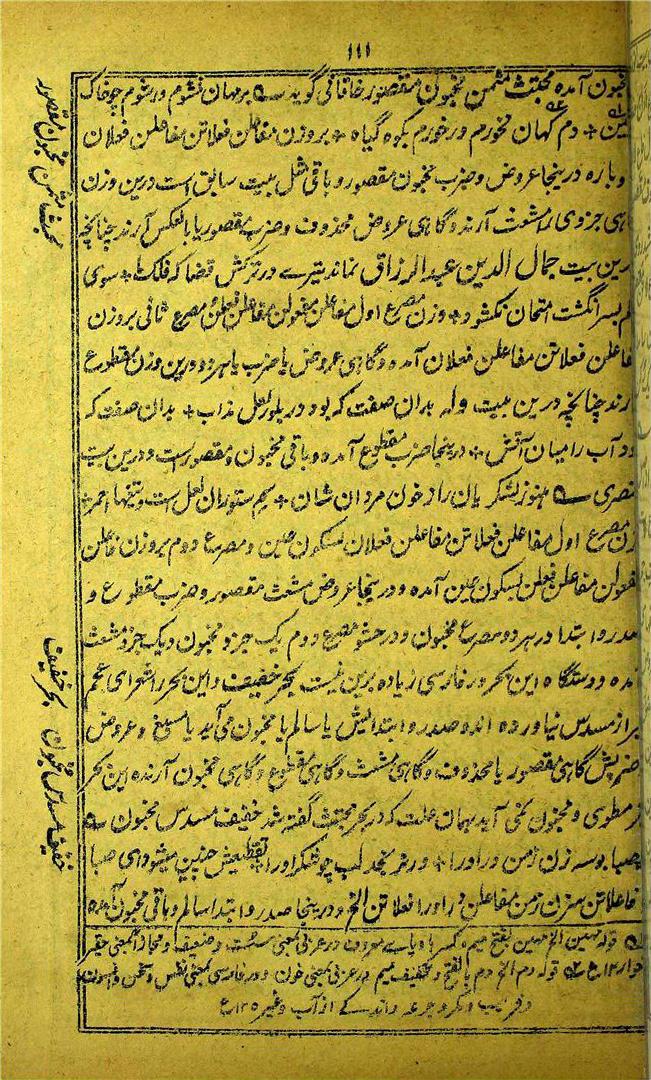 ۱۱۱
مخبون آمده مجتث مثمن مخبون مقصور خاقانی گوید ے بر مہان نشوم ور شوم چو خاک
مہین + دم کہان نخورم ور خورم بکوہ گیاہ + بر وزن مفاعلن فعلاتن مفاعلن فعلان
دوبارہ درینجا عروض و ضرب مخبون مقصور و باقی مثل بیت سابق است درین وزن
گاہی جزوی را مشعث آرند و گاہی عروض محذوف و ضرب مقصور یا بالعکس آرند چنانچہ
درین بیت جمال الدین عبد الرزاق نماند تیرے در ترکش قضا کہ فلک + سوی
دلم بسر انگشت امتحان نکشود + وزن مصرع اول مفاعلن مفعولن مفاعلن فعلن و مصرع ثانی بر وزن
مفاعلن فعلاتن مفاعلن فعلان آمده و گاہی عروض یا ضرب یا ہر دو درین وزن مقطوع
آرند چنانچہ درین بیت ولہ بدان صفت کہ بود در بلور لعل مذاب + بدان صفت کہ
بود آب را میان آتش + درینجا ضرب مقطوع آمده و باقی مخبون و مقصور است و درین بیت
عنصری ے ہنوز لشکر یان راز خون مردان شان + سم ستوران لعل ست و تیغہا احمر +
وزن مصرع اول مفاعلن فعلاتن مفاعلن فعلان بسکون عین و مصرع دوم بر وزن مفاعلن
مفعولن مفاعلن فعلن بسکون عین آمده و درینجا عروض مشعث مقصور و ضرب مقطوع و
صدر و ابتدا در ہر دو مصرع مخبون و در حشو مصرع دوم یک جزو مخبون و یک جزو مشعث
آمده و دستگاہ این بحر در فارسی زیادہ برین نیست بحر خفیف و این بحر را شعرای عجم
بر از مسدس نیاورده اند و صدر و ابتدایش یا سالم یا مخبون می آید یا مسبغ و عروض
و ضربش گاہی مقصور یا محذوف و گاہی مشعث و گاہی مقطوع و گاہی مخبون آرند این بحر
از مطوی و مخبون نمی آید بہمان علت کہ در بحر مجتث گفته شد خفیف مسدس مخبون ے
صبا بوسہ زن زمن در او را + ور نجد لب چو شکر او را + تقطیعش چنین میشود ای صبا
فاعلاتن سزن زمن مفاعلن در او را فعلاتن الخ و درینجا صدر و ابتدا سالم و باقی مخبون آمده
قولہ مہین الخ مہین بفتح میم و کسر ہا و یاے معروف در عربی بمعنی سست و ضعیف و مجازاً بمعنی حقیر
خوار ۱۲ ع قولہ دم الخ دم بالفتح و تخفیف میم در عربی بمعنی خون و در فارسی بمعنی نفس و سخن و افسون
و فریب و مکر و جرعہ و اندکے از آب و غیرہ ۱۲ ع
مجتث مثمن مخبون مقصور
بحر خفیف
خفیف مسدس مخبون